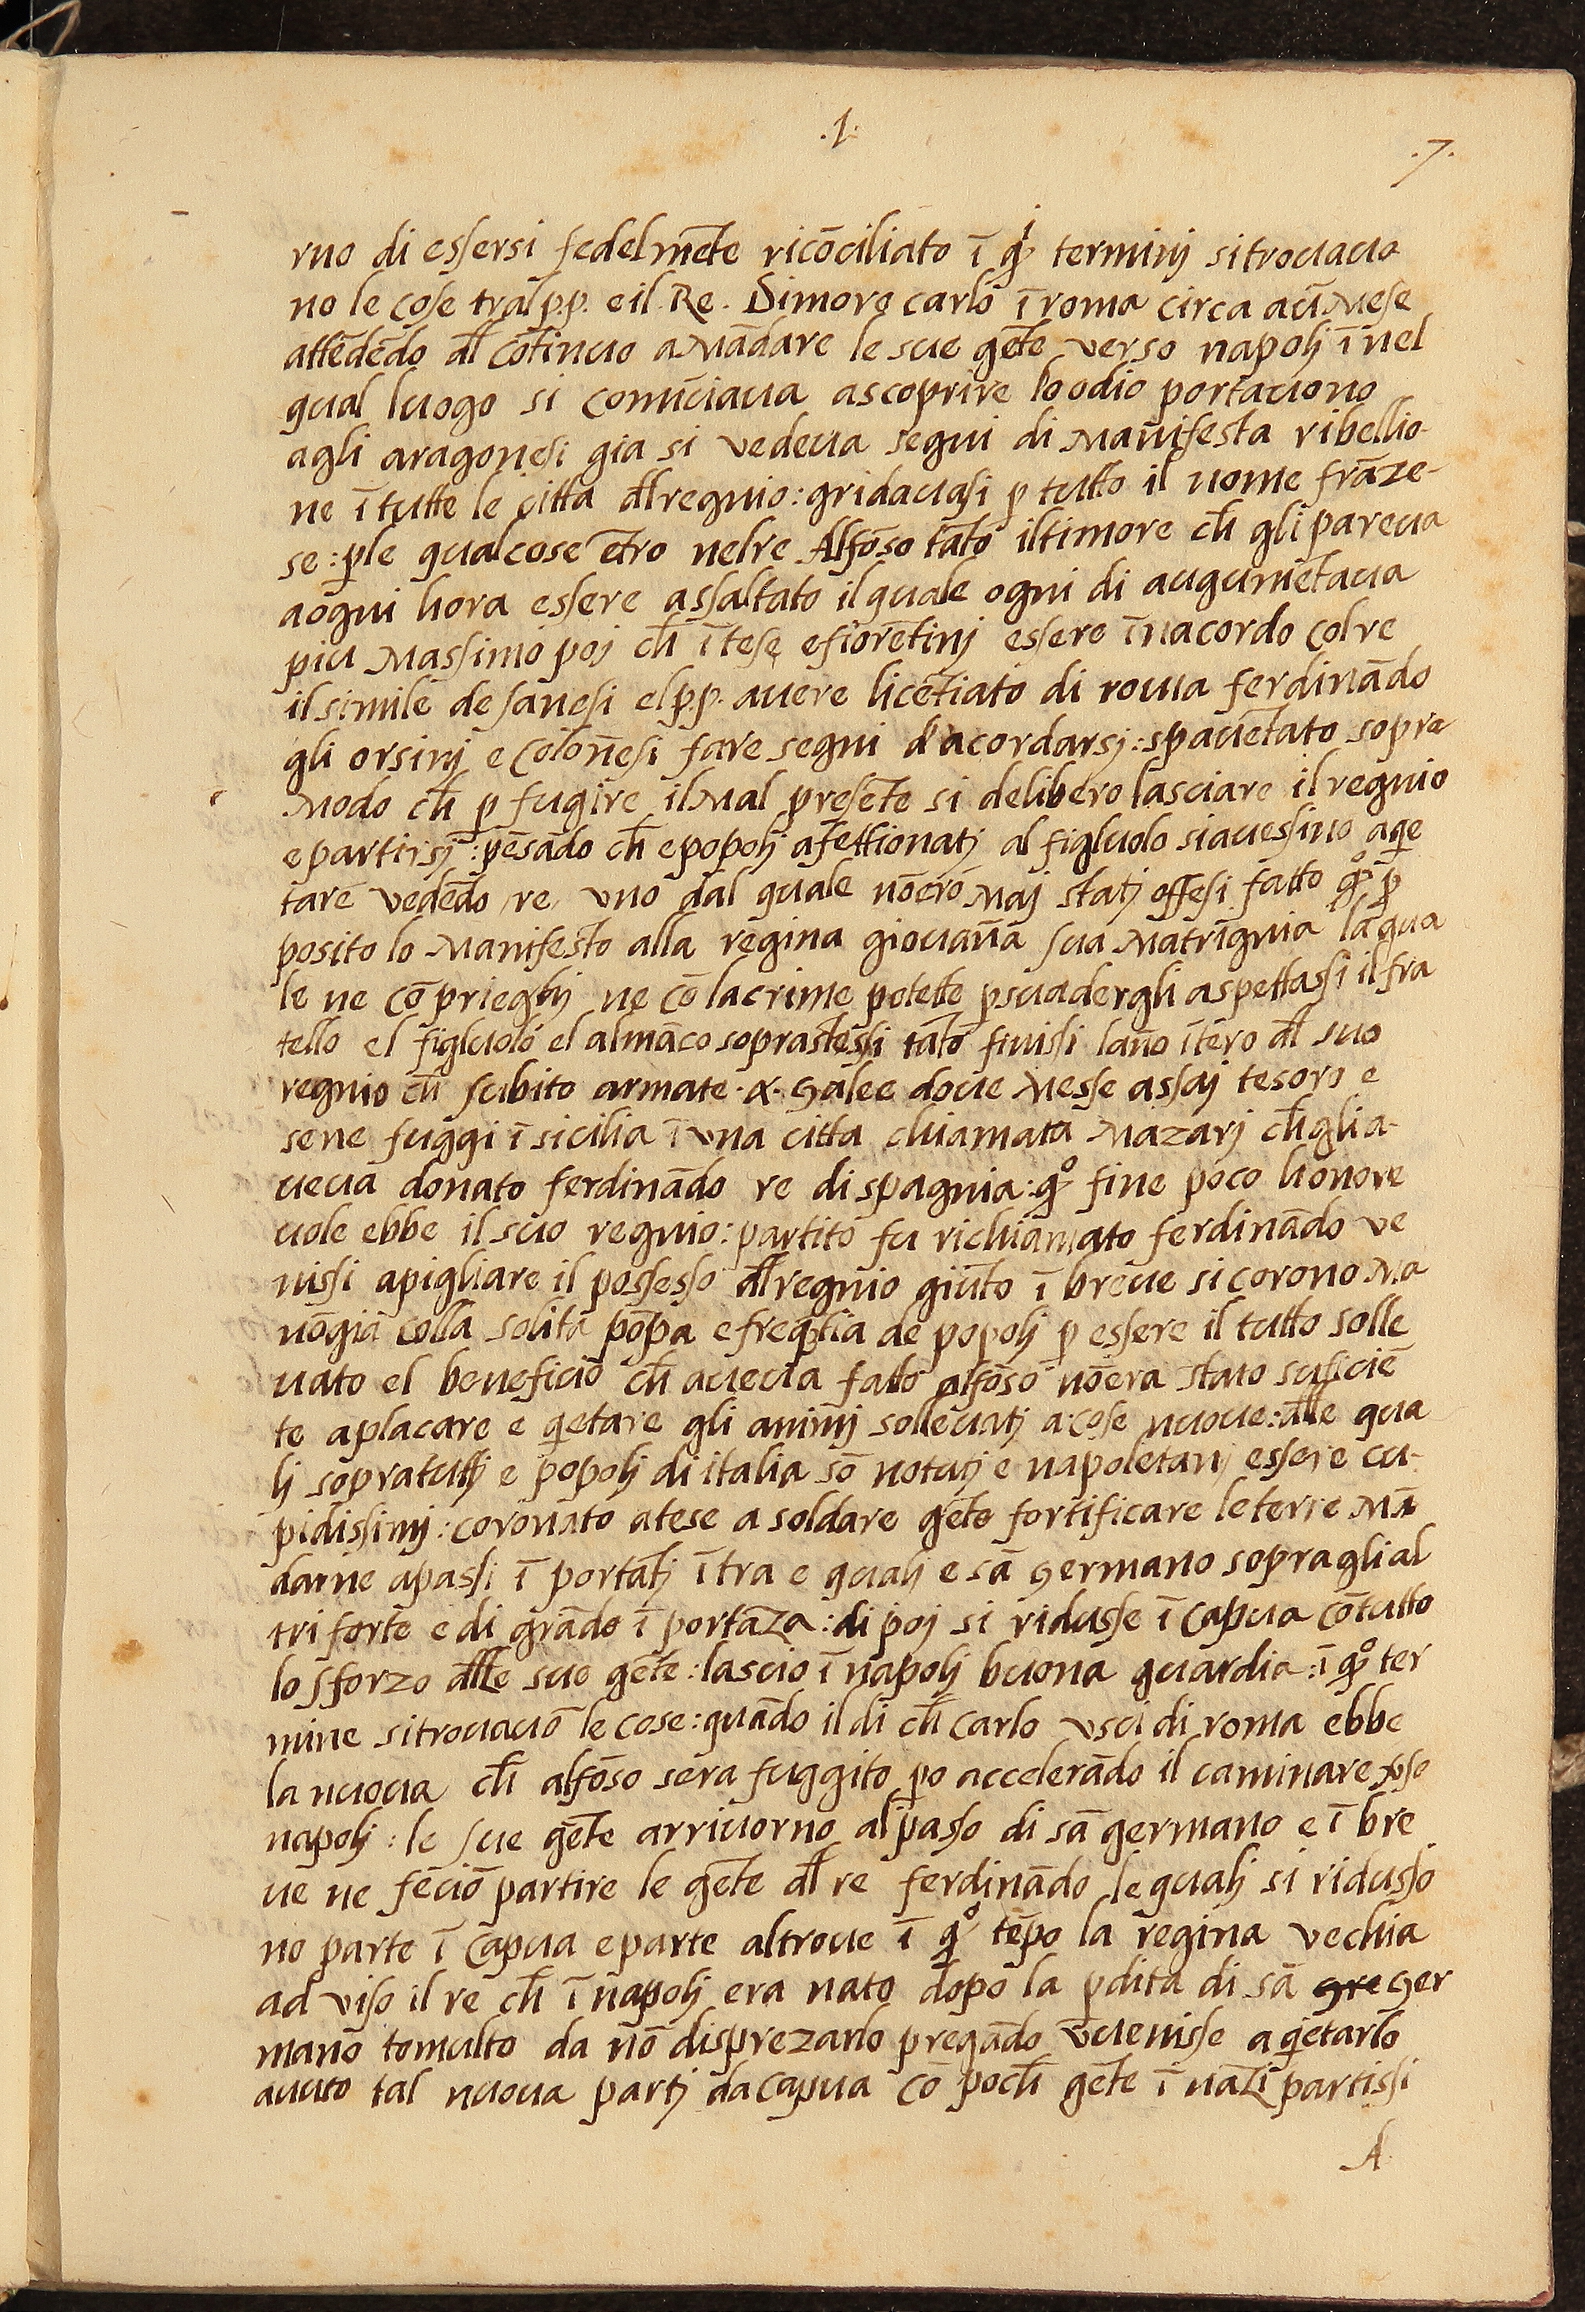 .I.
.7.
rno di essersi fedelmẽte ricõciliato ĩ q̃i terminj sitrovava
no le cose tral p.p. e il Re. Dimoro carlo ĩ roma circa aũ Mese
attẽdẽdo dl̃ cõtinuo a Mãdare le sue gẽte verso napolj ĩ nel
qual luogo si comĩciava ascoprire lo odio portavono
agli aragonesi gia si vedeva segni di Manifesta ribellio-
ne ĩ tutte le citta dl̃ regnio: gridavasi p tutto il nome frãze-
se: ple qualcose ẽtro nelre Alfõso tãto iltimore ch̃ gli pareva
aogni hora essere assaltato il quale ogni di augumẽtava
piu Massimo poj ch̃ ĩtese efiorẽtinj essere ĩnacordo colre
ilsimile de sanesi el p.p. avere licẽtiato di roma ferdinãdo
gli orsinj e colonesi fare segni d'acordarsj: spavẽtato sopra
Modo ch̃ p fugire il Mal presẽte si delibero lasciare il regnio
e partirsj: pẽsãdo ch̃ epopolj afettionatj al figluolo siavessino aq̃e
tare vedẽdo re uno dal quale nõero Maj statj offesi fatto q̃o p
posito lo Manifesto alla regina giovãna sua Matrĩgnia la qua
le ne cõ prieghj ne cõ lacrime potette psuadergli aspettassi il fra
tello el figluolo el almãco soprastessi tãto finissi lãno ĩtero dl̃ suo
regnio ch̃ subito armate .x. Galee dove Messe assaj tesoro e
sene fuggi ĩ sicilia ĩ una citta chiamata Mazarj ch̃ gli a-
veva donato ferdinãdo re di spagnia: q̃o fine poco honore
vole ebbe il suo regnio: partito fu richiamato ferdinãdo ve
nissi apigliare il possesso dl̃ regnio giũto ĩ breve si corono Ma
nõgia colla solita põpa e freq̃tia de popolj p essere il tutto solle
vato el beneficio ch̃ aveva fatto alfõso nõera stato suficiẽ
te aplacare e q̃etare gli animj sollevatj a cose nuove: dl̃le qua
lj sopratuttj e popolj di italia sõ notatj e napoletanj essere cu-
pidissimj: coronato atese a soldare gẽte fortificare le terre Mã
darne apassi ĩ portãtj ĩtra e qualj e sã Germano sopra gli al
tri forte e di grãde ĩ portãza: di poj si ridusse ĩ Capua cõtutto
lo sforzo dl̃le sue gẽte: lascio ĩ napolj buona guardia: ĩ q̃o ter
mine sitrovavõ le cose: quãdo il di ch̃ Carlo usci di roma ebbe
la nuova ch̃ alfõso sera fuggito po accelerãdo il caminare vso
napolj: le sue gẽte arrivorno al passo di sã germano e ĩ bre
ve ne feciõ partire le gẽte dl̃ re ferdinãdo le qualj si ridusso
no parte ĩ Capua e parte altrove ĩ q̃o tẽpo la regina vechia
ad viso il re ch̃ ĩ napolj era nato dopo la pdita di sã gre Ger
mano tomulto da nõ disprezarlo pregãdo vevenisse a q̃etarlo
avuto tal nuova partj da capua cõ poch̃ gẽte ĩ nãzi partissi
A